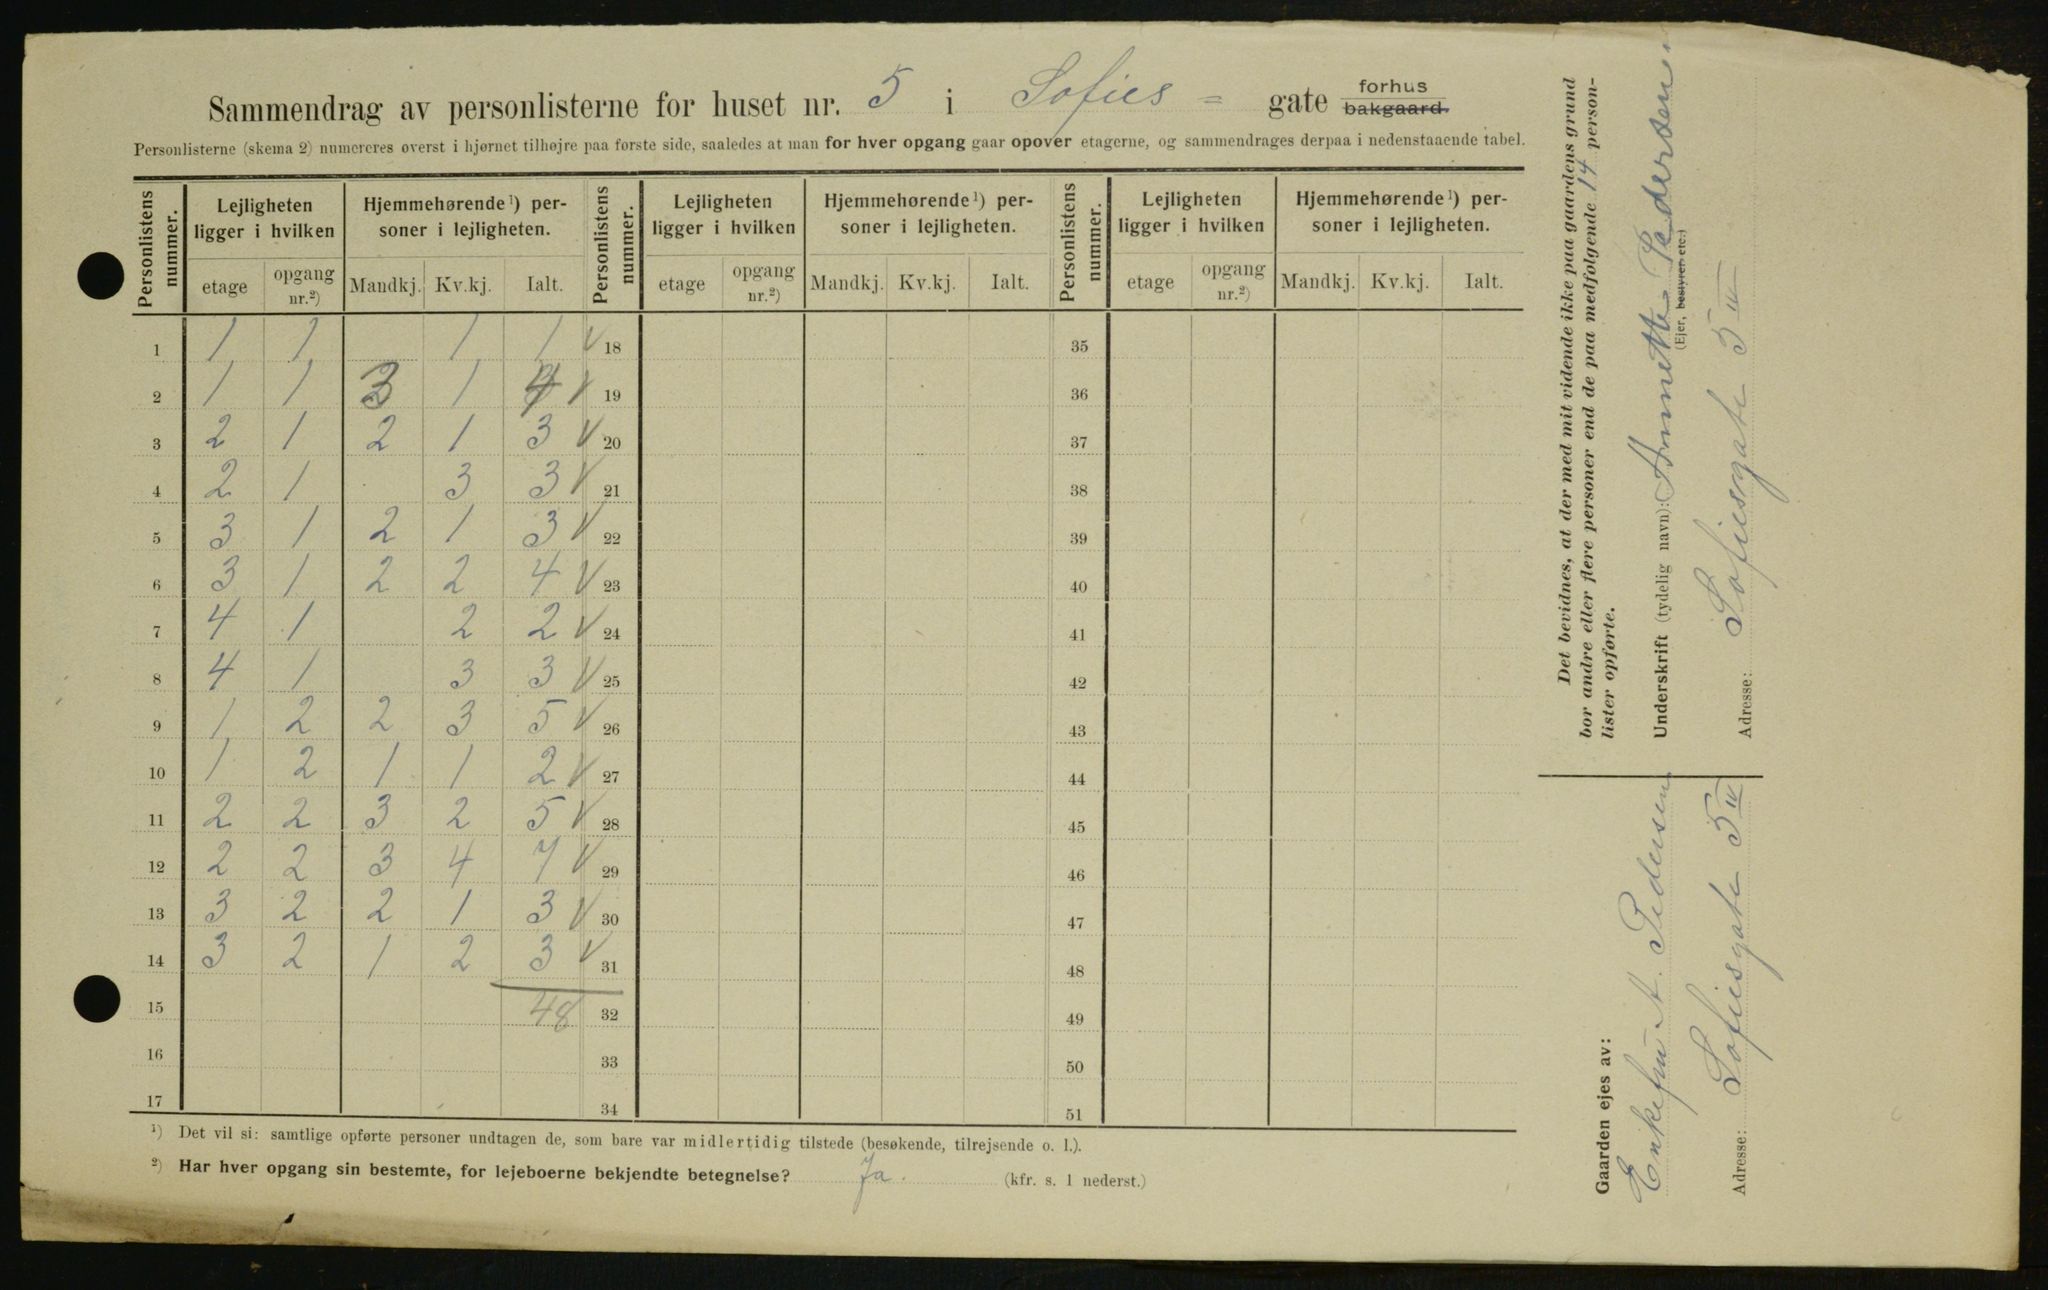 Sammendrag av personlisterne for huset nr. 5 i Sofies = gate forhus
bakgaard.
Personlisterne (skema 2) numereres øverst i hjørnet tilhøjre paa første side, saaledes at man for hver opgang gaar opover etagerne, og sammendrages derpaa i nedenstaaende tabel.
Personlistens nummer. Lejligheten ligger i hvilken Hjemmehørende ¹) personer i lejligheten. Personlistens nummer. Lejligheten ligger i hvilken Hjemmehørende ¹) personer i lejligheten. Personlistens nummer. Lejligheten ligger i hvilken Hjemmehørende ¹) personer i lejligheten.
etage opgang nr.²) Mandkj. Kv.kj. Ialt. etage opgang nr.²) Mandkj. Kv.kj. Ialt. etage opgang nr.²) Mandkj. Kv.kj. Ialt.
1 1 1 1 1 √ 18 35
2 1 1 3 1 4 √ 19 36
3 2 1 2 1 3 √ 20 37
4 2 1 3 3 √ 21 38
5 3 1 2 1 3 √ 22 39
6 3 1 2 2 4 √ 23 40
7 4 1 2 2 √ 24 41
8 4 1 3 3 √ 25 42
9 1 2 2 3 5 √ 26 43
10 1 2 1 1 2 √ 27 44
11 2 2 3 2 5 √ 28 45
12 2 2 3 4 7 √ 29 46
13 3 2 2 1 3 √ 30 47
14 3 2 1 2 3 √ 31 48
15 48 32 49
16 33 50
17 34 51
¹) Det vil si: samtlige opførte personer undtagen de, som bare var midlertidig tilstede (besøkende, tilrejsende o. l.).
²) Har hver opgang sin bestemte, for lejeboerne bekjendte betegnelse? Ja. (kfr. s. 1 nederst.)
Det bevidnes, at der med mit vidende ikke paa gaardens grund
bor andre eller flere personer end de paa medfølgende 14 person-
lister opførte.
Underskrift (tydelig navn): Annette Pedersen
(Ejer, bestyrer etc.)
Adresse: Sofiesgate 5 IV
Gaarden ejes av:
Enkefru A. Pedersen
Adresse: Sofiesgate 5 IV